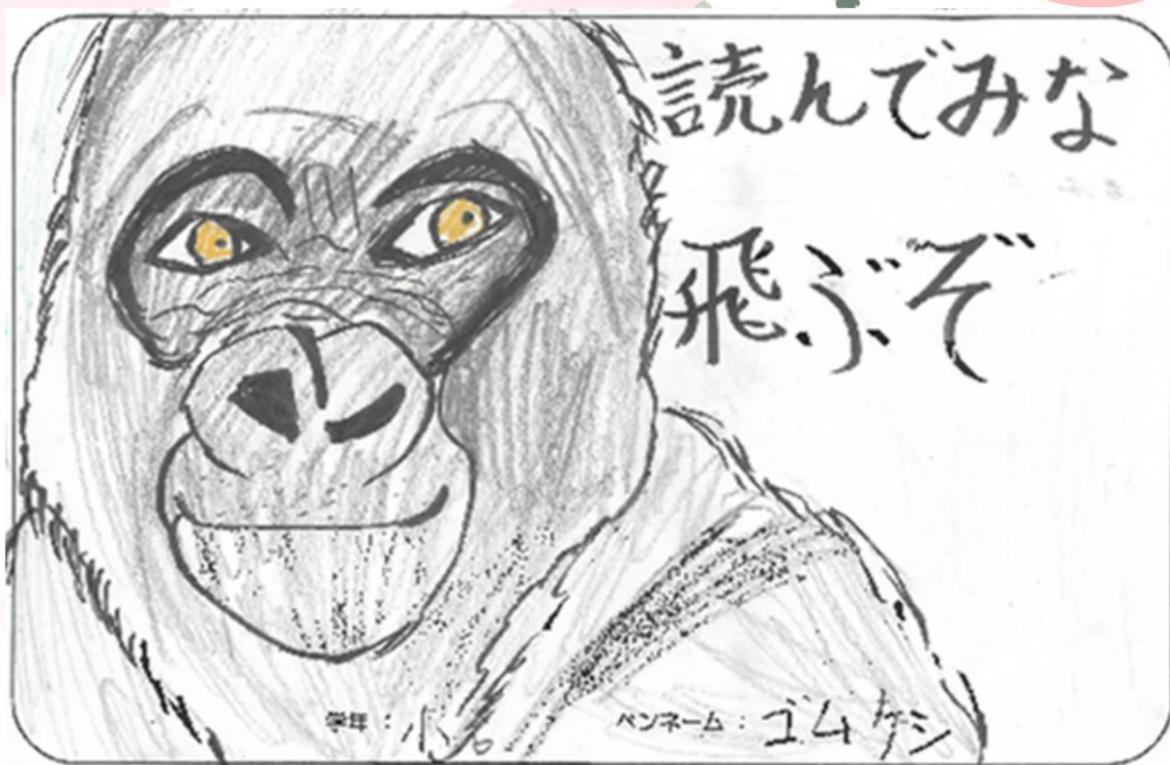 読んでみな
飛ぶぞ
学年：小
ペンネーム：ゴムケシ